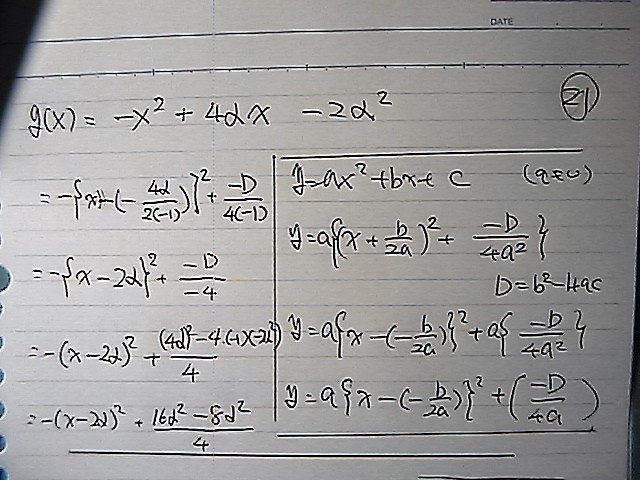 DATE
21
g(x) = -x² + 4αx - 2α²
= -{x-(-4α/2(-1))}² + -D/4(-1)
= -{x-2α}² + -D/-4
= -(x-2α)² + (4α)²-4·(-1)(-2α²)/4
= -(x-2α)² + 16α²-8α²/4
y=ax²+bx+c (a≠0)
y=a{(x+b/2a)²+ -D/4a²}
D=b²-4ac
y=a{x-(-b/2a)}²+a{-D/4a²}
y=a{x-(-b/2a)}²+(-D/4a)